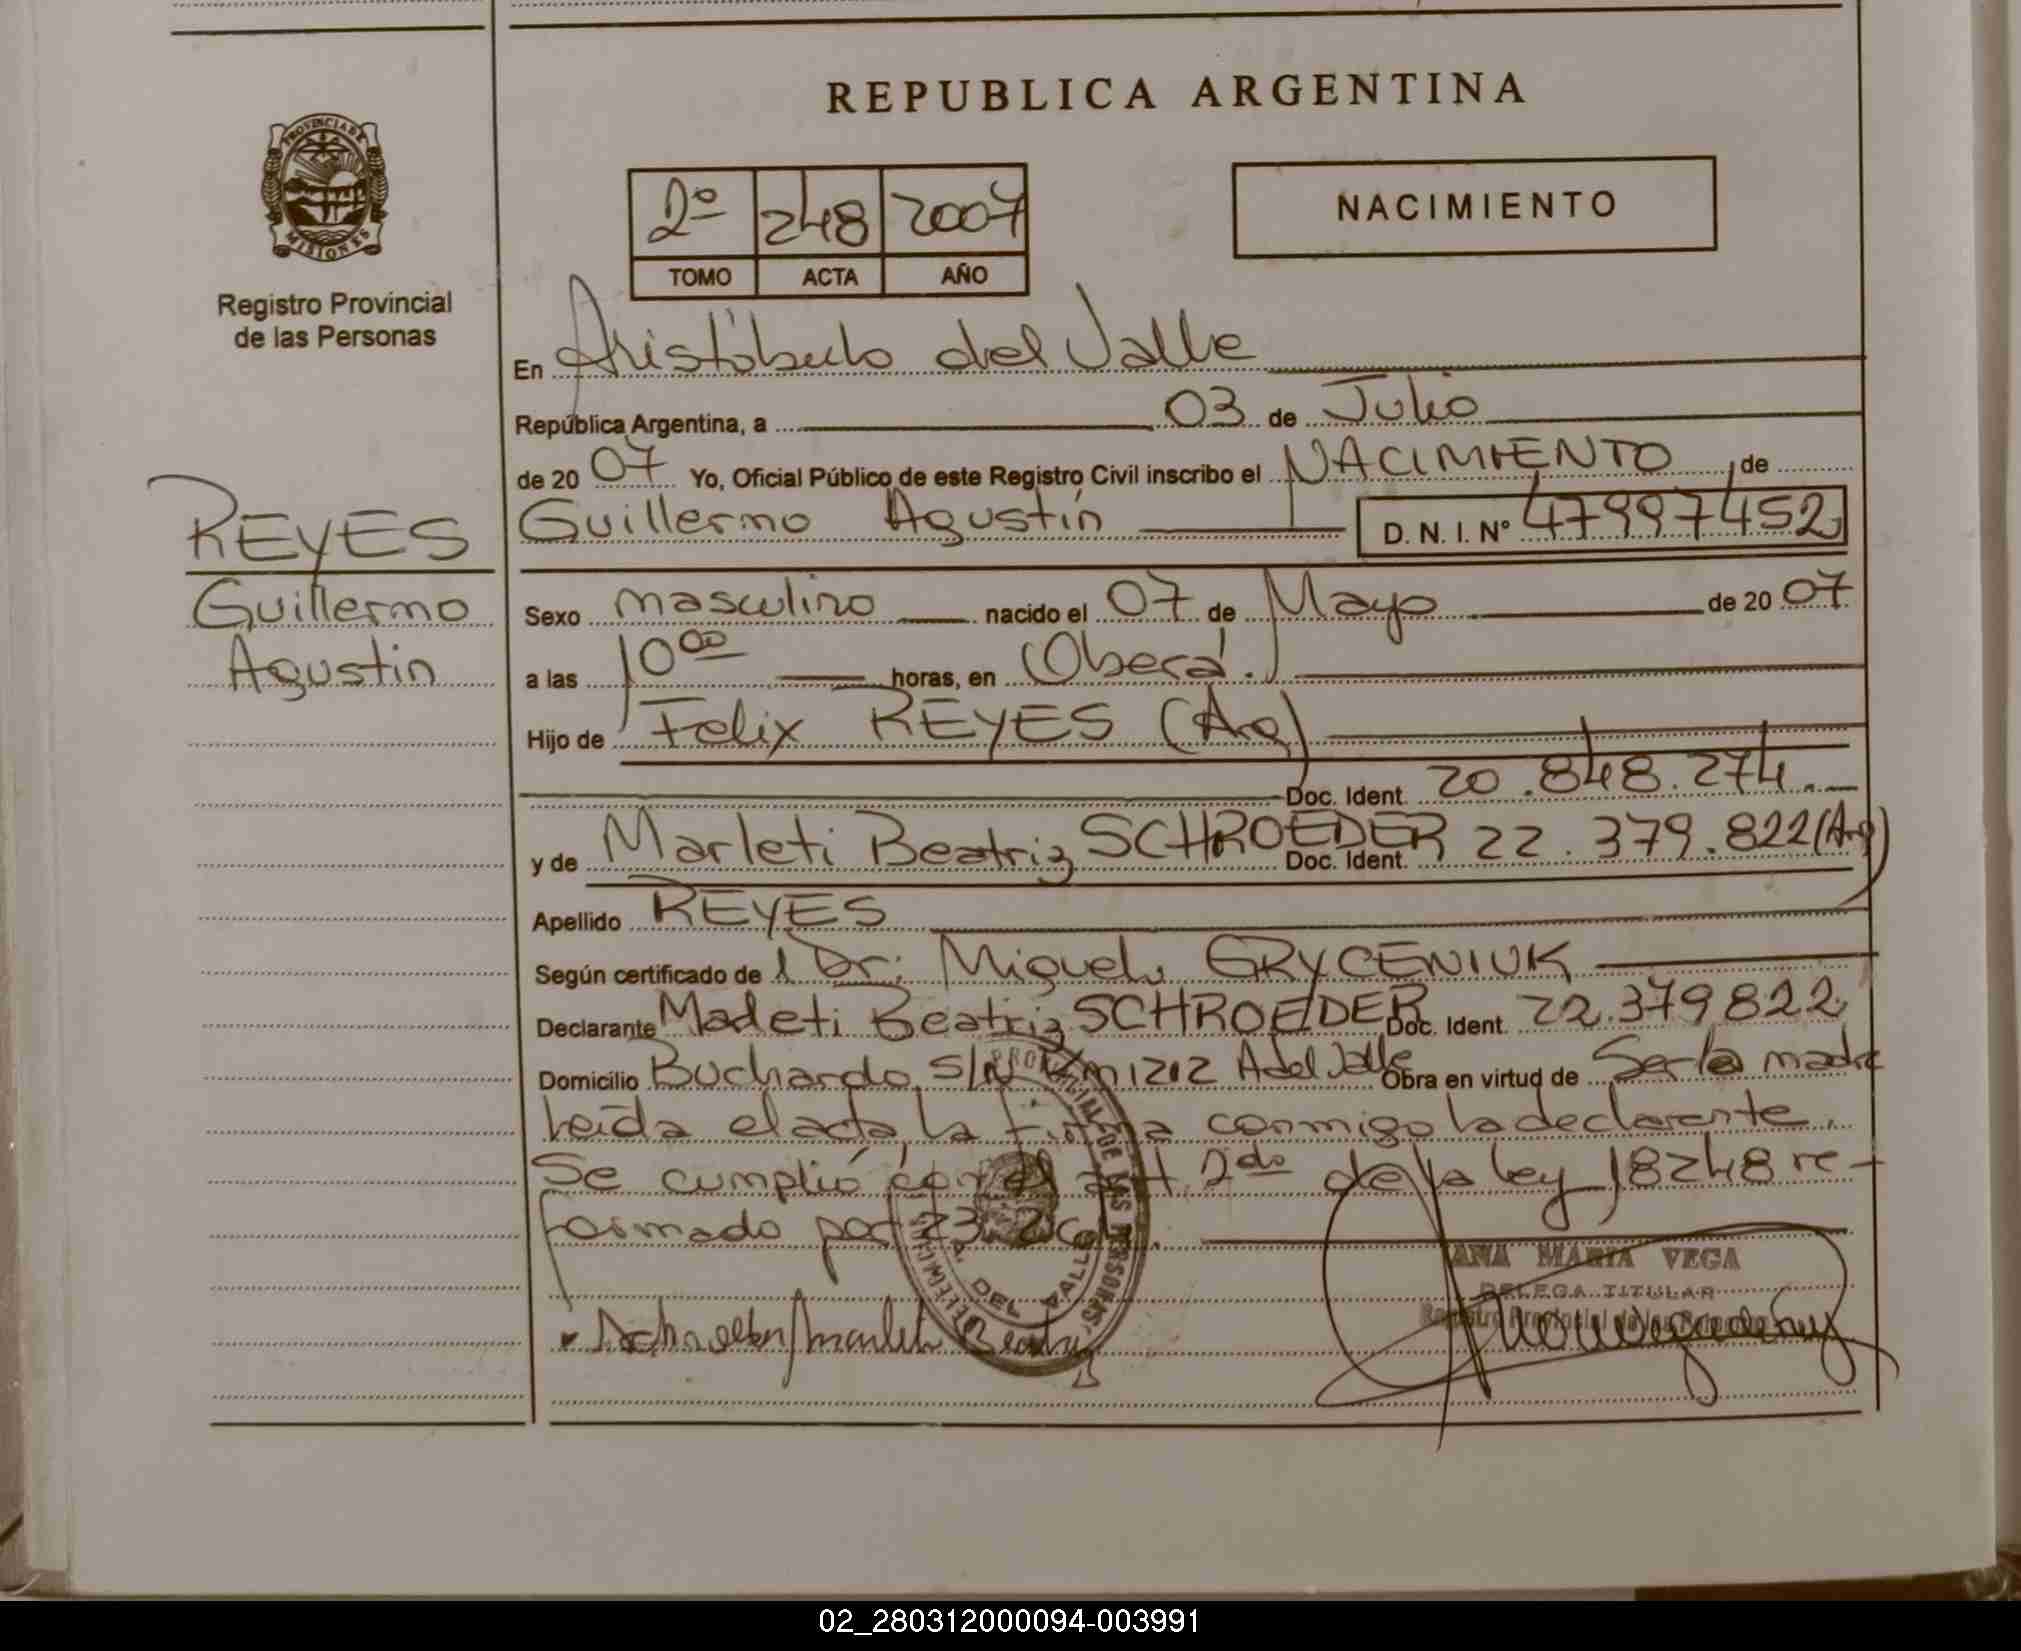 REPUBLICA ARGENTINA
PROVINCIA DE MISIONES
Registro Provincial
de las Personas
2º 248 2007
TOMO ACTA AÑO
NACIMIENTO
En Aristóbulo del Valle
República Argentina, a 03 de Julio
de 20 07 Yo, Oficial Público de este Registro Civil inscribo el NACIMIENTO, de
Guillermo Agustín D. N. I. Nº 47997452
REYES
Guillermo
Agustin
Sexo masculino nacido el 07 de Mayo de 20 07
a las 10 00 horas, en Oberá.
Hijo de Felix REYES (Arg)
Doc. Ident. 20.848.274.
y de Marleti Beatriz SCHROEDER Doc. Ident. 22.379.822 (Arg)
Apellido REYES
Según certificado de Dr. Miguel GRYCENIUK
Declarante Marleti Beatriz SCHROEDER Doc. Ident. 22.379822
Domicilio Buchardo S/N Km 1212 A del Valle Obra en virtud de Ser la madre
Leída el acta, la firma conmigo la declarante.
Se cumplió con el art. 2do de la ley 18248 re-
formado por 23.
PROVINCIAL DE LAS PERSONAS
DEL VALLE
ANA MARIA VEGA
DELEGA TITULAR
Registro Provincial de las Personas
Schroeder Marleti Beatriz
02_280312000094-003991